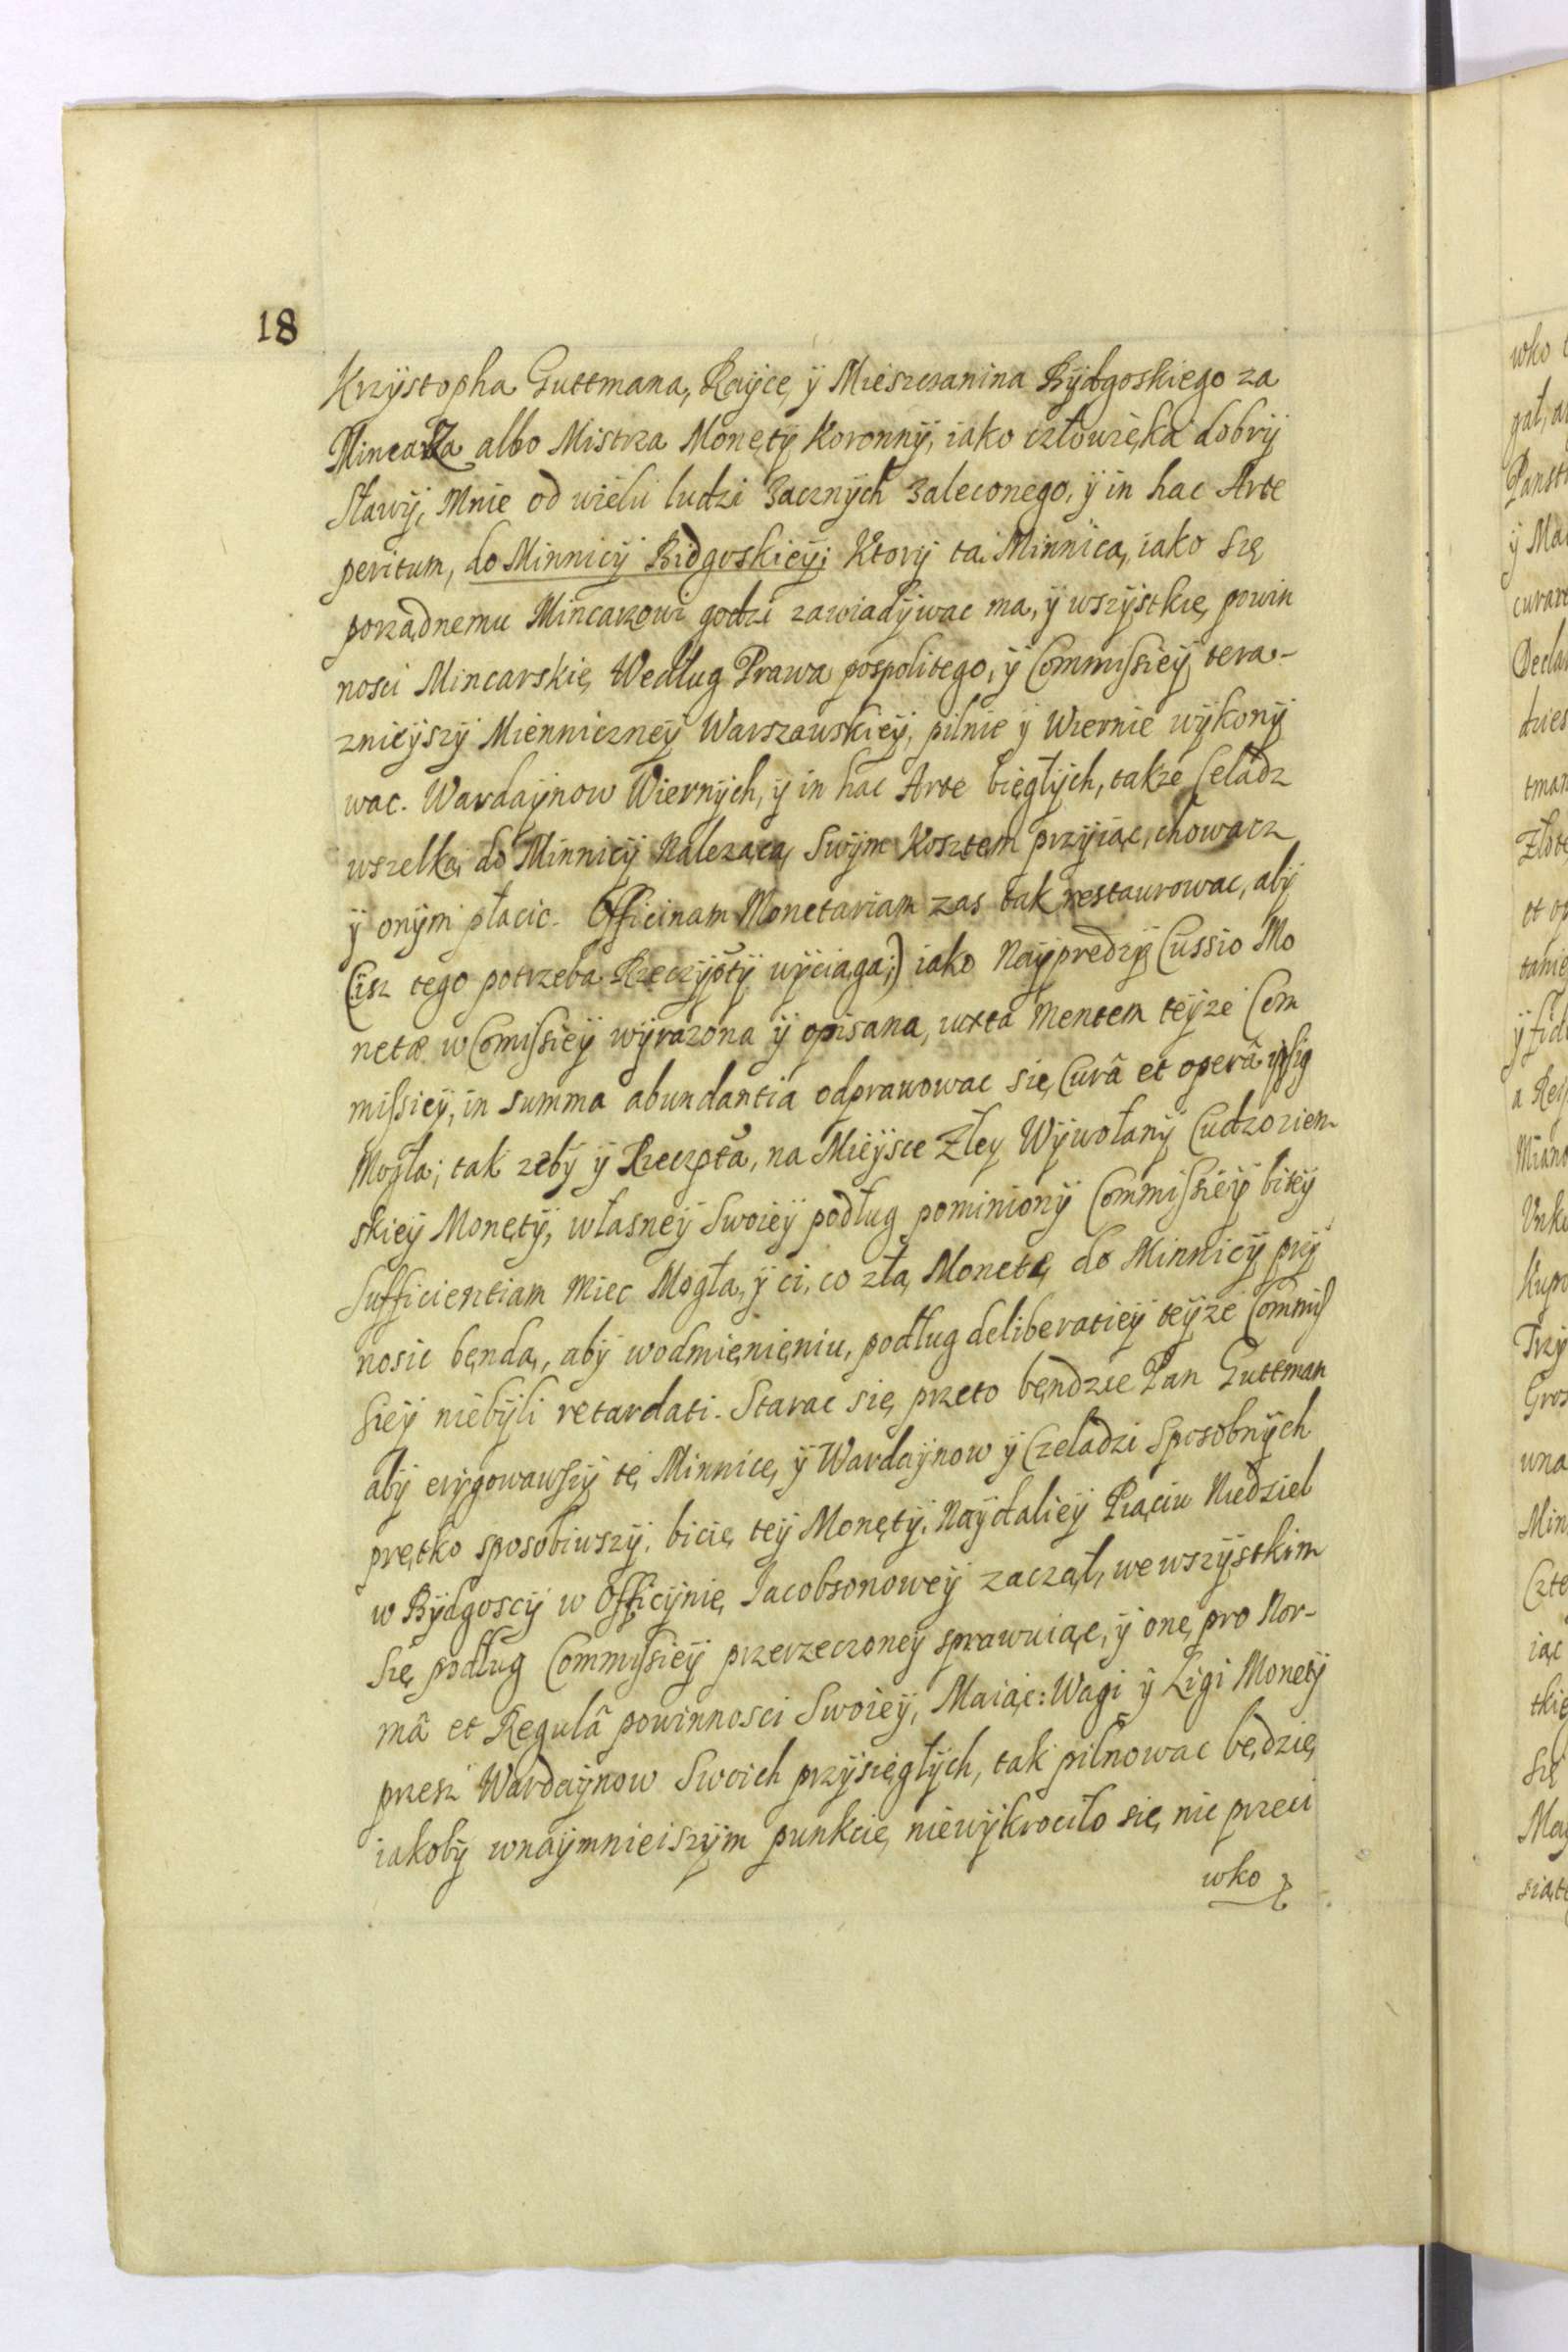 18
Krzÿstopha Guttmana, Raÿcę ÿ Mieszczanina Bÿdgoskiego za
Mincarza albo Mistrza Monetÿ Koronnÿ, iako człowieka dobrÿ
Sławÿ, Mnie od wielu ludzi zacznÿch zaleconego, ÿ in hac Arte
peritum, do Minnicÿ Bidgoskieÿ; Ktorÿ tą Minnicą, iako się
porządnemu Mincarzowi godzi zawiadÿwac ma, ÿ wszÿstkię powin
nosci Mincarskię Według Prawa pospolitego, ÿ Commissieÿ tera-
znieÿszÿ Mienniczneÿ Warszawskieÿ, pilnie ÿ Wiernie wÿkonÿ
wac. Wardaÿnow Wiernÿch, ÿ in hac Arte biegłÿch, takze Celadz
wszelką do Minnicÿ Nalezącą Swÿm Kosztem przÿiąc, chowacz
ÿ onÿm płacic. Officinam Monetariam zas tak restaurowac, abÿ
(isz tego potrzeba Rzeczÿptÿ wÿciąga;) iako Naÿpredzÿ Cussio Mo
netæ w Comissieÿ wÿrazona ÿ opisana, iuxta Mentem teÿze Com
missieÿ, in summa abundantia odprawowac się Curâ et operâ ipsig
Mogła; tak zebÿ ÿ Rzeczpta, na Mieÿsce Złeÿ Wÿwołanÿ Cudzoziem
skieÿ Monetÿ, własneÿ Swoieÿ podług pominionÿ Commissieÿ biteÿ
Sufficientiam Miec Mogła, ÿ ci, co złą Monetę do Minnicÿ przÿ
nosic bęndą, abÿ wodmięnięniu, podług deliberatieÿ teÿze Commis
sieÿ niebÿli retardati. Starac się przeto bęndzie Pan Guttman
abÿ erÿgowawszÿ tę Minnicę ÿ Wardaÿnow ÿ Czeladzi Sposobnÿch
prętko sposobiwszÿ, bicię teÿ Monetÿ, Naÿdalieÿ Piąciu Niedziel
w Bÿdgosczÿ w Officÿnię Jacobsonoweÿ zaczął, we wszÿstkim
się podług Commissieÿ przerzeczoneÿ sprawuiąc, ÿ onę pro Nor-
mâ et Regulâ powinnosci Swoieÿ, Maiąc: Wagi ÿ Ligi Monetÿ
przesz Wardaÿnow Swoich przÿsięgłÿch, tak pilnowac będzię
iakobÿ wnaÿmnieiszÿm punkcię niewÿkrociło się nic przeci
wko